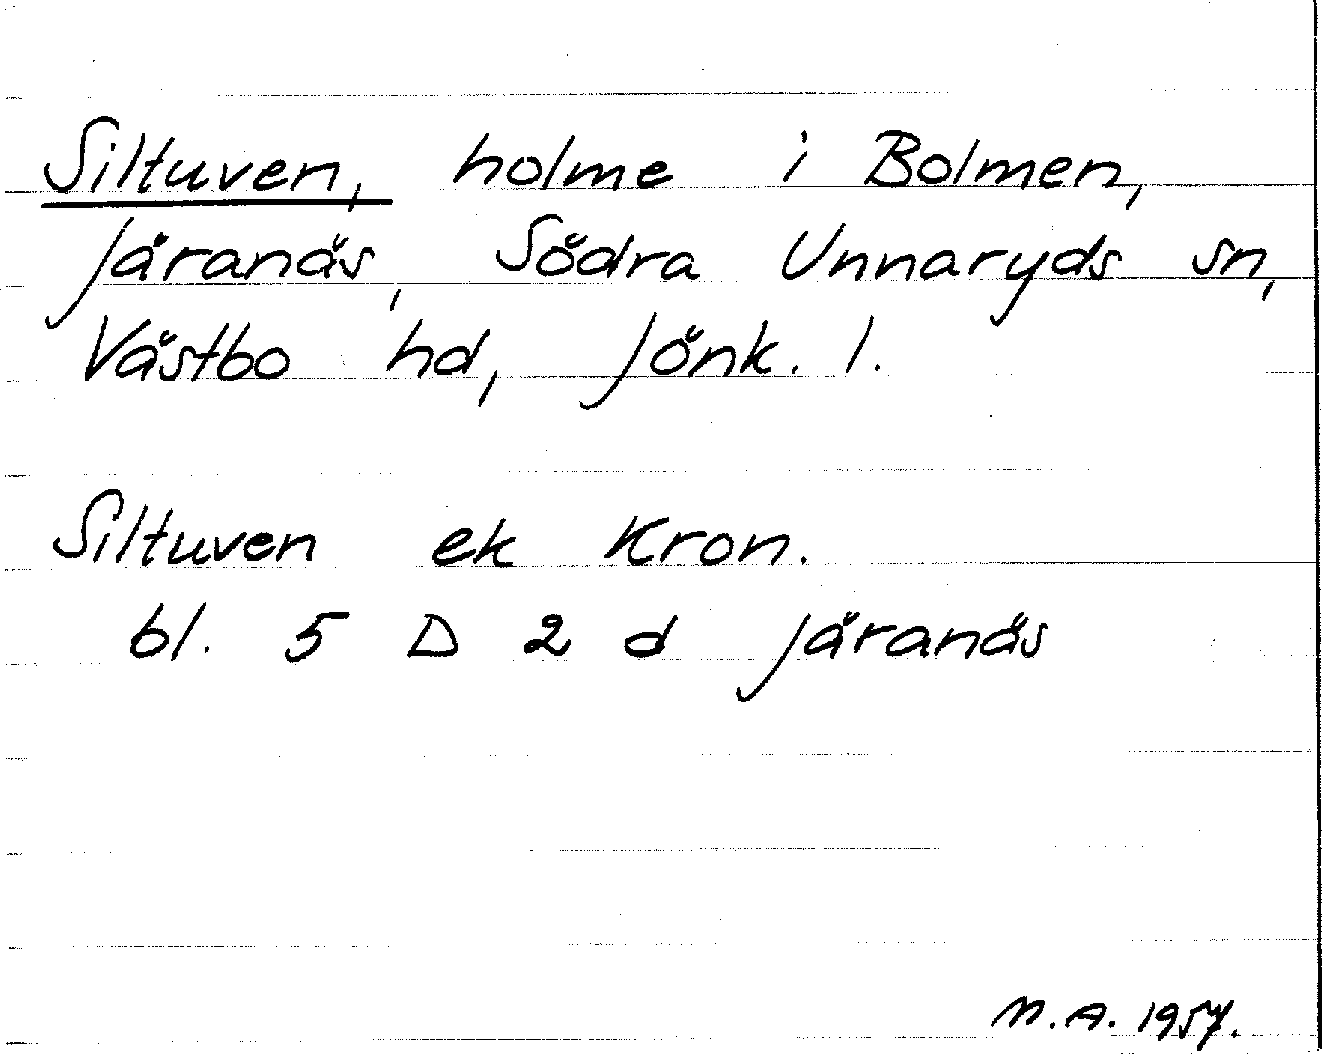 Siltuven, holme i Bolmen,
Järanäs, Södra Unnaryds sn,
Västbo hd, Jönk. l.
Siltuven ek Kron.
bl. 5 D 2 d Järanäs
N.A. 1957.